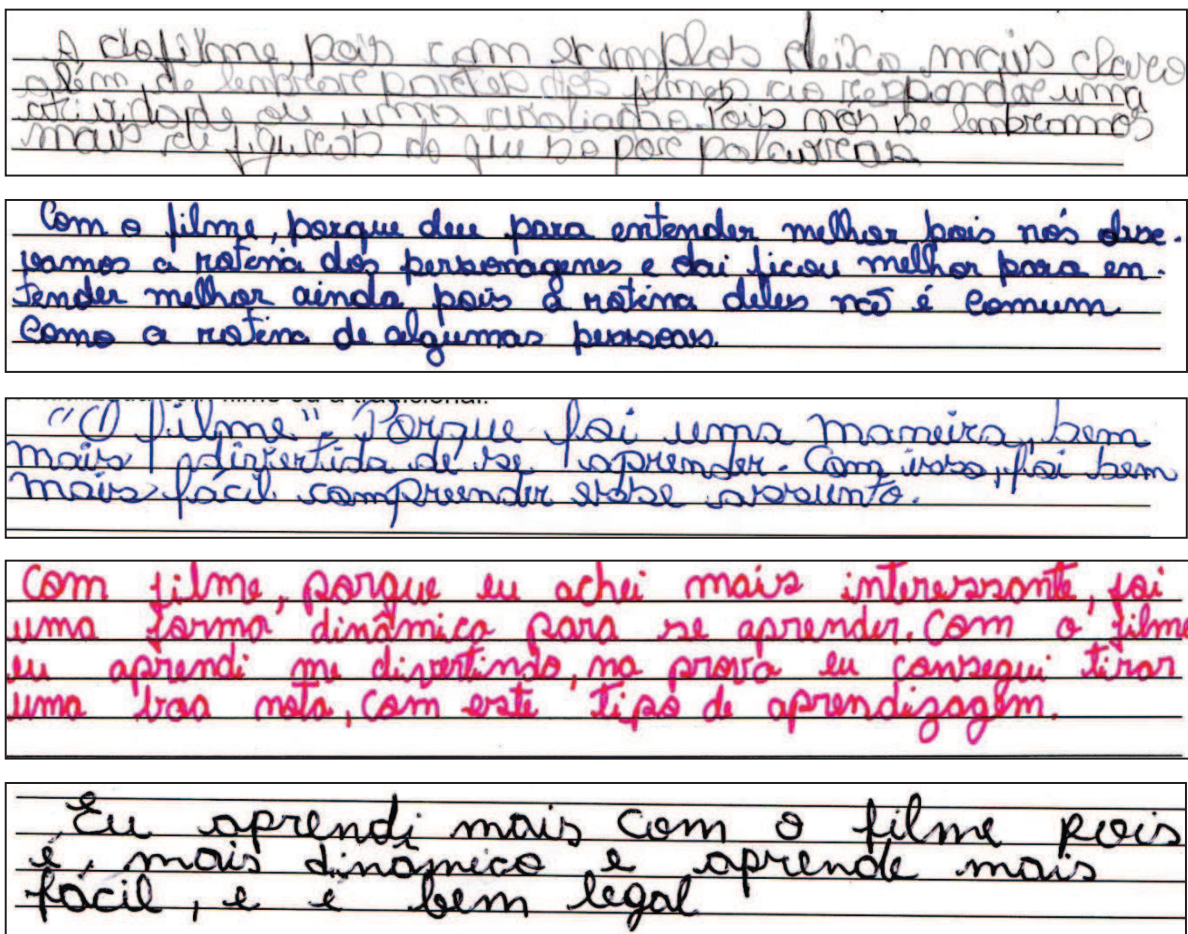 A do filme, pois com exemplos deixa mais claro
além de lembrar partes dos filmes ao responder uma
atividade ou uma avaliação. Pois nós se lembramos
mais de figuras do que so por palavras
Com o filme, porque deu para entender melhor pois nós obse-
vamos a rotina dos personagenes e dai ficou melhor para en-
tender melhor ainda pois a rotina deles não é comum
como a rotina de algumas pessoas.
"O filme" Porque foi uma maneira, bem
mais divertida de se aprender. Com isso, foi bem
mais fácil compreender esse assunto.
Com filme, porque eu achei mais interessante, foi
uma forma dinâmica para se aprender. Com o filme
eu aprendi me divertindo, na prova eu consegui tirar
uma boa nota, com este tipo de aprendizagem.
Eu aprendi mais com o filme pois
é, mais dinâmico e aprende mais
fácil, e é bem legal